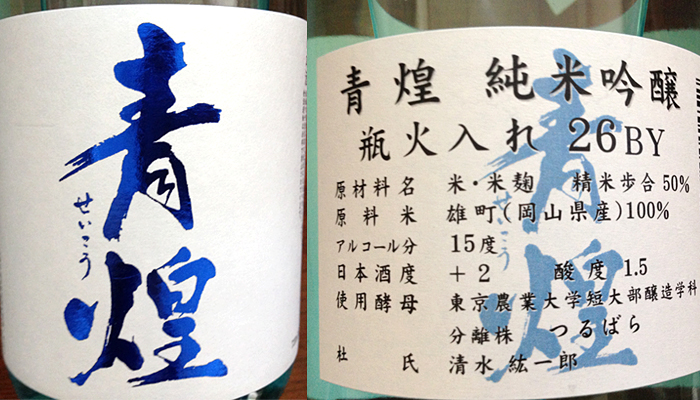 青煌
せいこう
青煌 純米吟醸
瓶火入れ 26BY
原材料名 米・米麹 精米歩合 50%
原料米 雄町(岡山県産)100%
アルコール分 15度
日本酒度 +2 酸度 1.5
使用酵母 東京農業大学短大部醸造学科
分離株 つるばら
杜氏 清水 紘一郎
青煌
せいこう